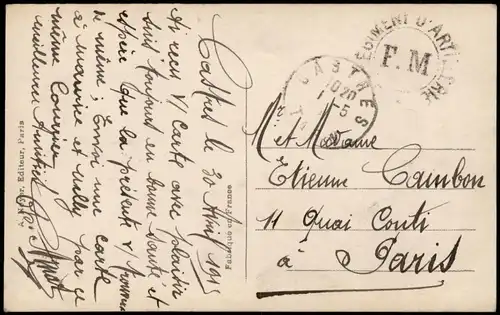 Castres le 30 Avril 1915
Ai reçu v/ Carte avec plaisir
suis toujours en bonne santé, et
espère que la présente v/ trouvera
de même; Envoi une carte
à Maurice et Willy par ce
même Courrier
meilleures Amitiés
Editeur, Paris
Fabriqué en France
RÉGIMENT D'ARTILLERIE
F. M
CASTRES
1 - 5
M et Madame
Etienne Cambon
11 Quai Conti
à Paris